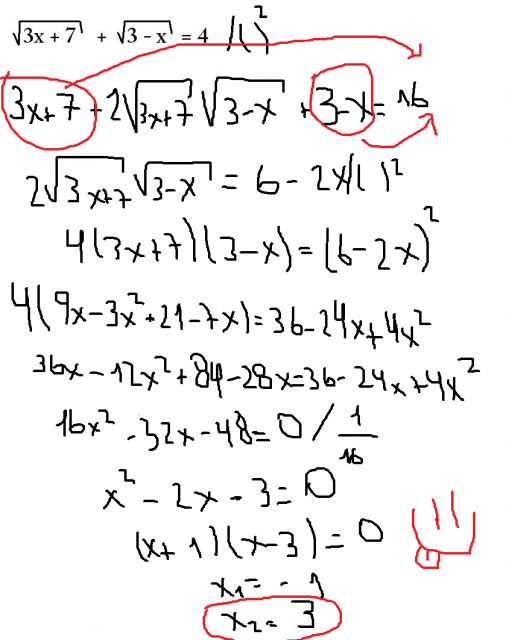 √(3x + 7) + √(3 - x) = 4 /( )²
3x+7+2√(3x+7) √(3-x) + 3-x = 16
2√(3x+7) √(3-x) = 6 - 2x /( )²
4(3x+7)(3-x) = (6-2x)²
4(9x-3x²+21-7x)=36-24x+4x²
36x-12x²+84-28x=36-24x+4x²
16x²-32x-48=0 / 1/16
x²-2x-3=0
(x+1)(x-3)=0
x₁=-1
x₂=3